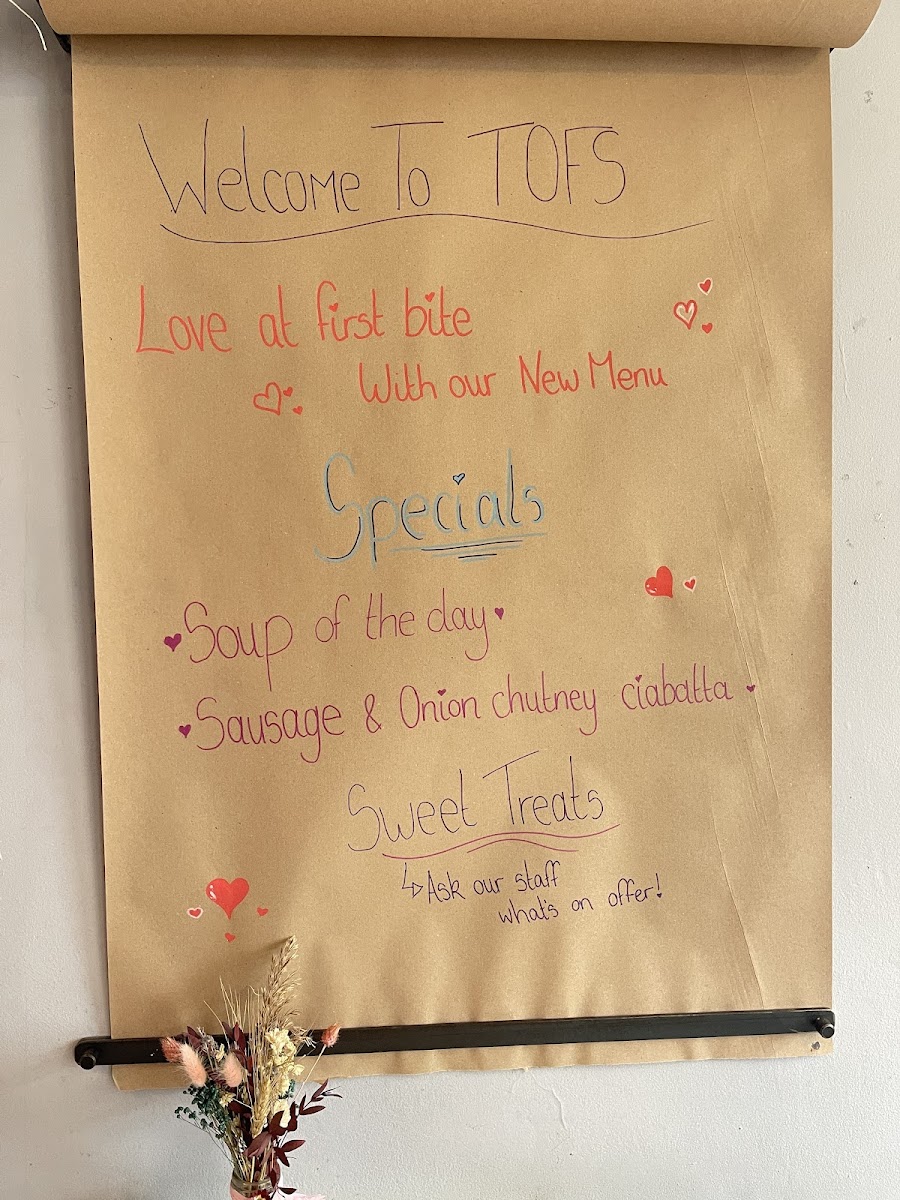 Welcome To TOFS
Love at first bite
With our New Menu
Specials
Soup of the day
Sausage & Onion chutney ciabatta
Sweet Treats
Ask our staff
what's on offer!